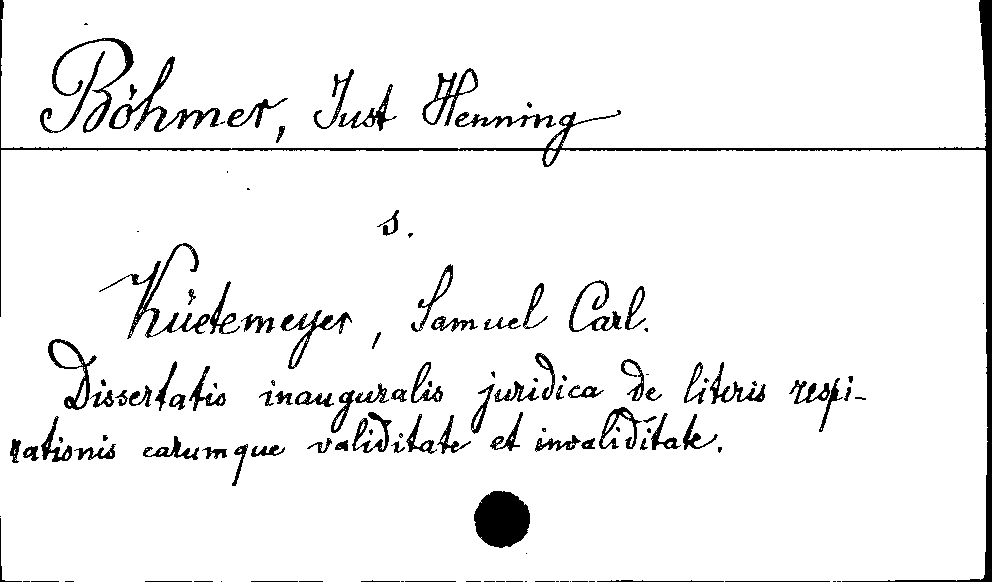 Böhmer, Just Henning
s.
Küetemeyer, Samuel Carl.
Dissertatio inauguralis juridica de literis respi-
rationis earumque validitate et invaliditate.